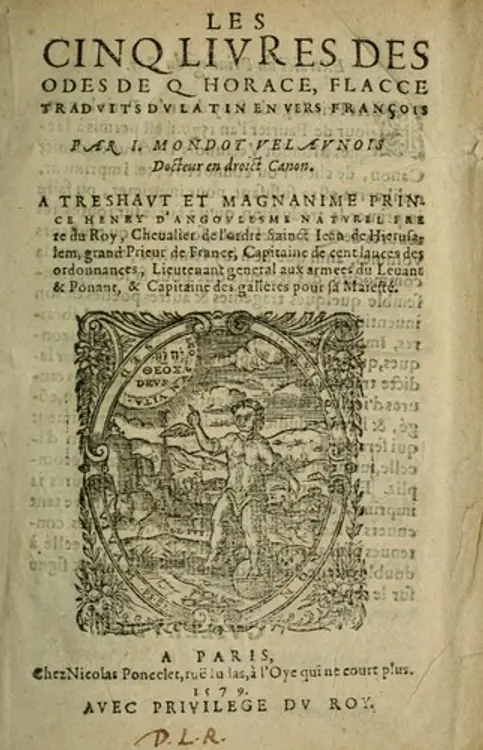 LES
CINQ LIVRES DES
ODES DE Q HORACE, FLACCE
TRADVITS DV LATIN EN VERS FRANÇOIS
PAR I. MONDOT VELAVNOIS
Docteur en droict Canon.
A TRESHAVT ET MAGNANIME PRIN-
CE HENRY D'ANGOVLESME NATVREL FRE
re du Roy, Cheualier de l'ordre Sainct Iean de Hierusa-
lem, grand Prieur de France, Capitaine de cent lances des
ordonnances, Lieutenant general aux armees du Leuant
& Ponant, & Capitaine des galleres pour sa Maiesté.
ΘΕΟΣ
DEVS
A PARIS,
Chez Nicolas Poncelet, ruë Iudas, à l'Oye qui ne court plus.
1579.
AVEC PRIVILEGE DV ROY.
D.L.R.